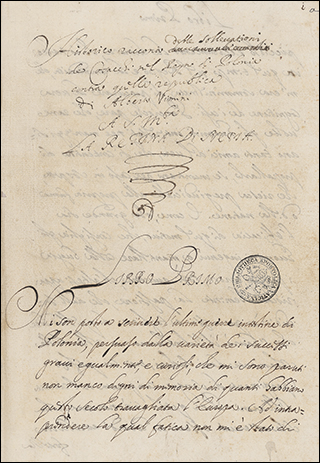 Historico racconto delle Sollevationi
de Cosacchi nel Regno di Polonia
contro quella republica
di Alberto Vimina
A S. M.tà
LA REGINA DI SVETIA
LIBRO PRIMO
Mi son posto a scriuere l'ultime guerre intestine di
Polonia, persuaso dalla varietà de i successi
graui egualmente e curiosi che mi sono paruti
non manco degni di memoria di quanti habbino
questo secolo trauagliata l'Europa. Ad intra-
prendere la qual fatica non mi è stato che